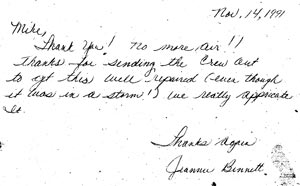 Nov. 14, 1991
Mike,
Thank You! No more air!!
Thanks for sending the Crew out
to get this well repaired (even though
it was in a storm!) We really appricate
it.
Thanks Again
Jeannie Bennett